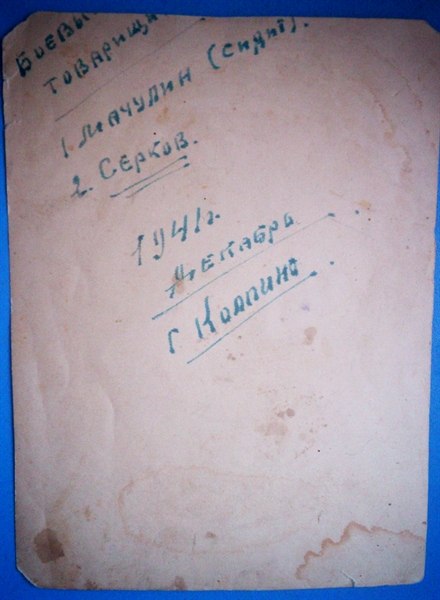 Боевы
товарища
1. Мачулин (сидит).
2. Серков.
1941г.
Декабрь
г Колпино.